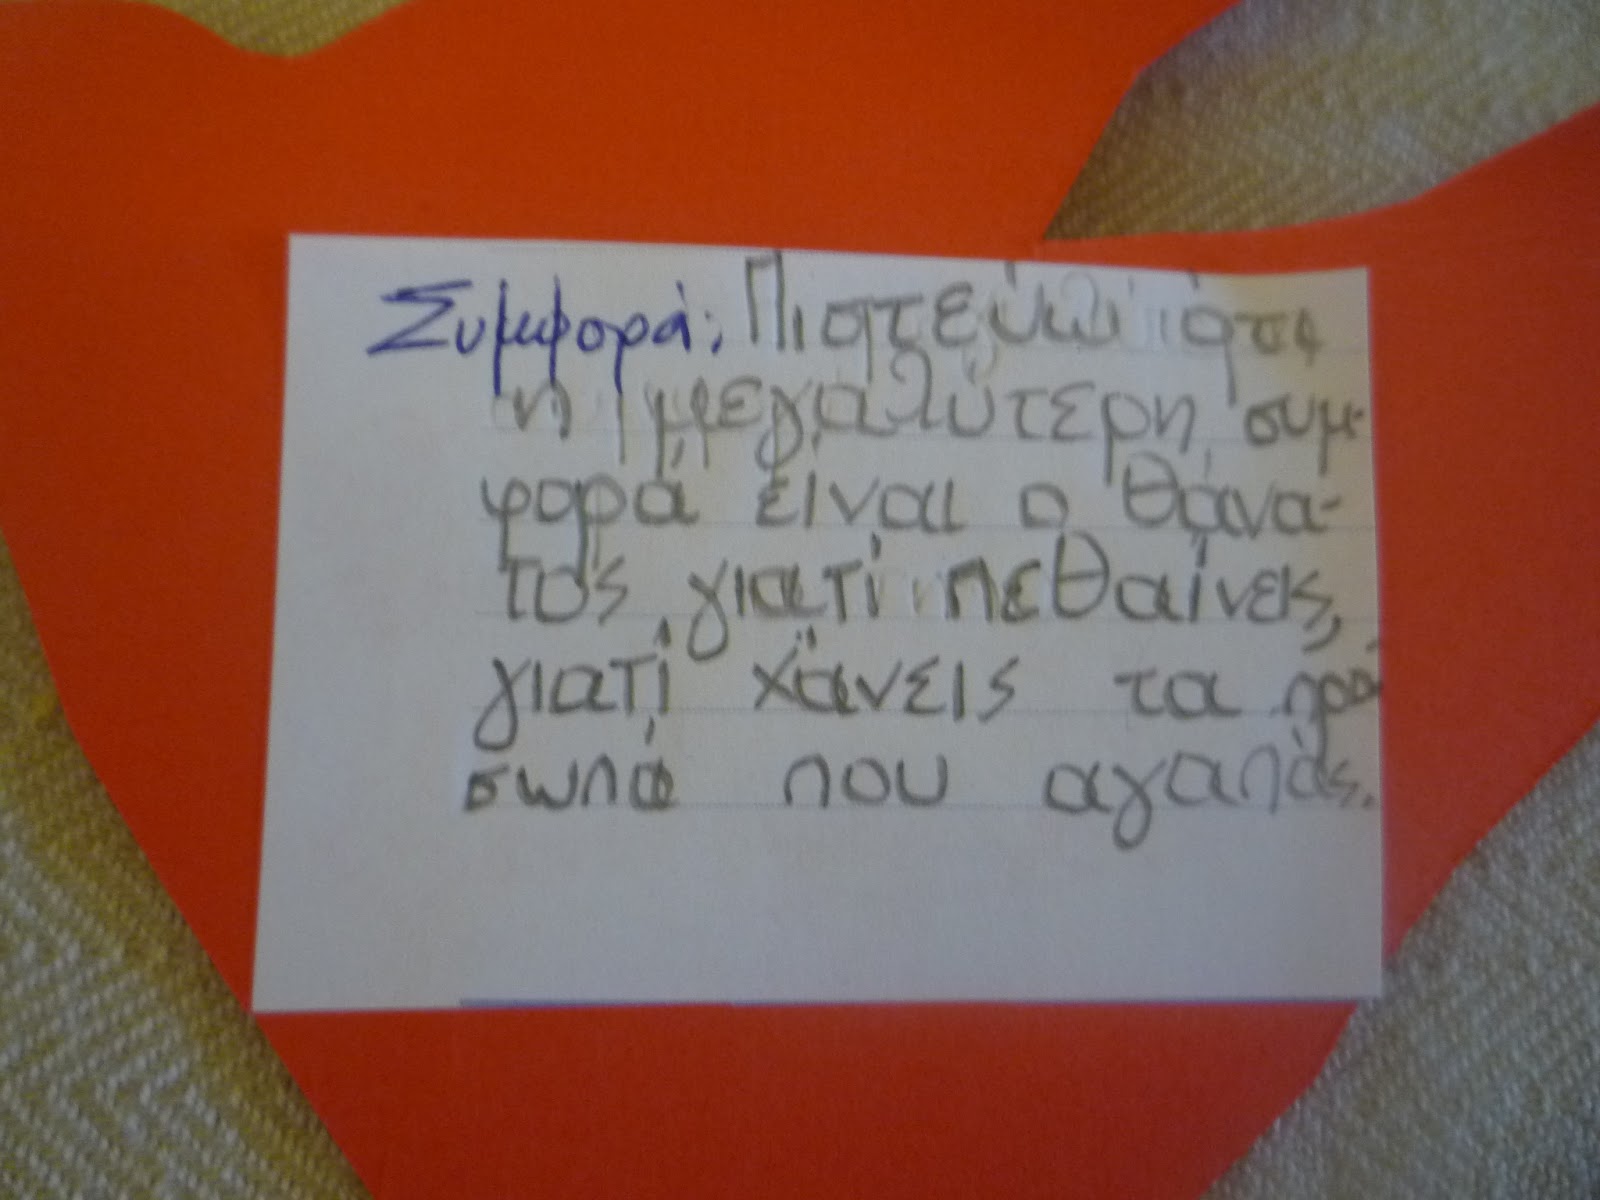 Συμφορά: Πιστεύω ότι
η μεγαλύτερη συμ-
φορά είναι ο θάνα-
τος γιατί πεθαίνεις,
γιατί χάνεις τα πρό
σωπα που αγαπάς.